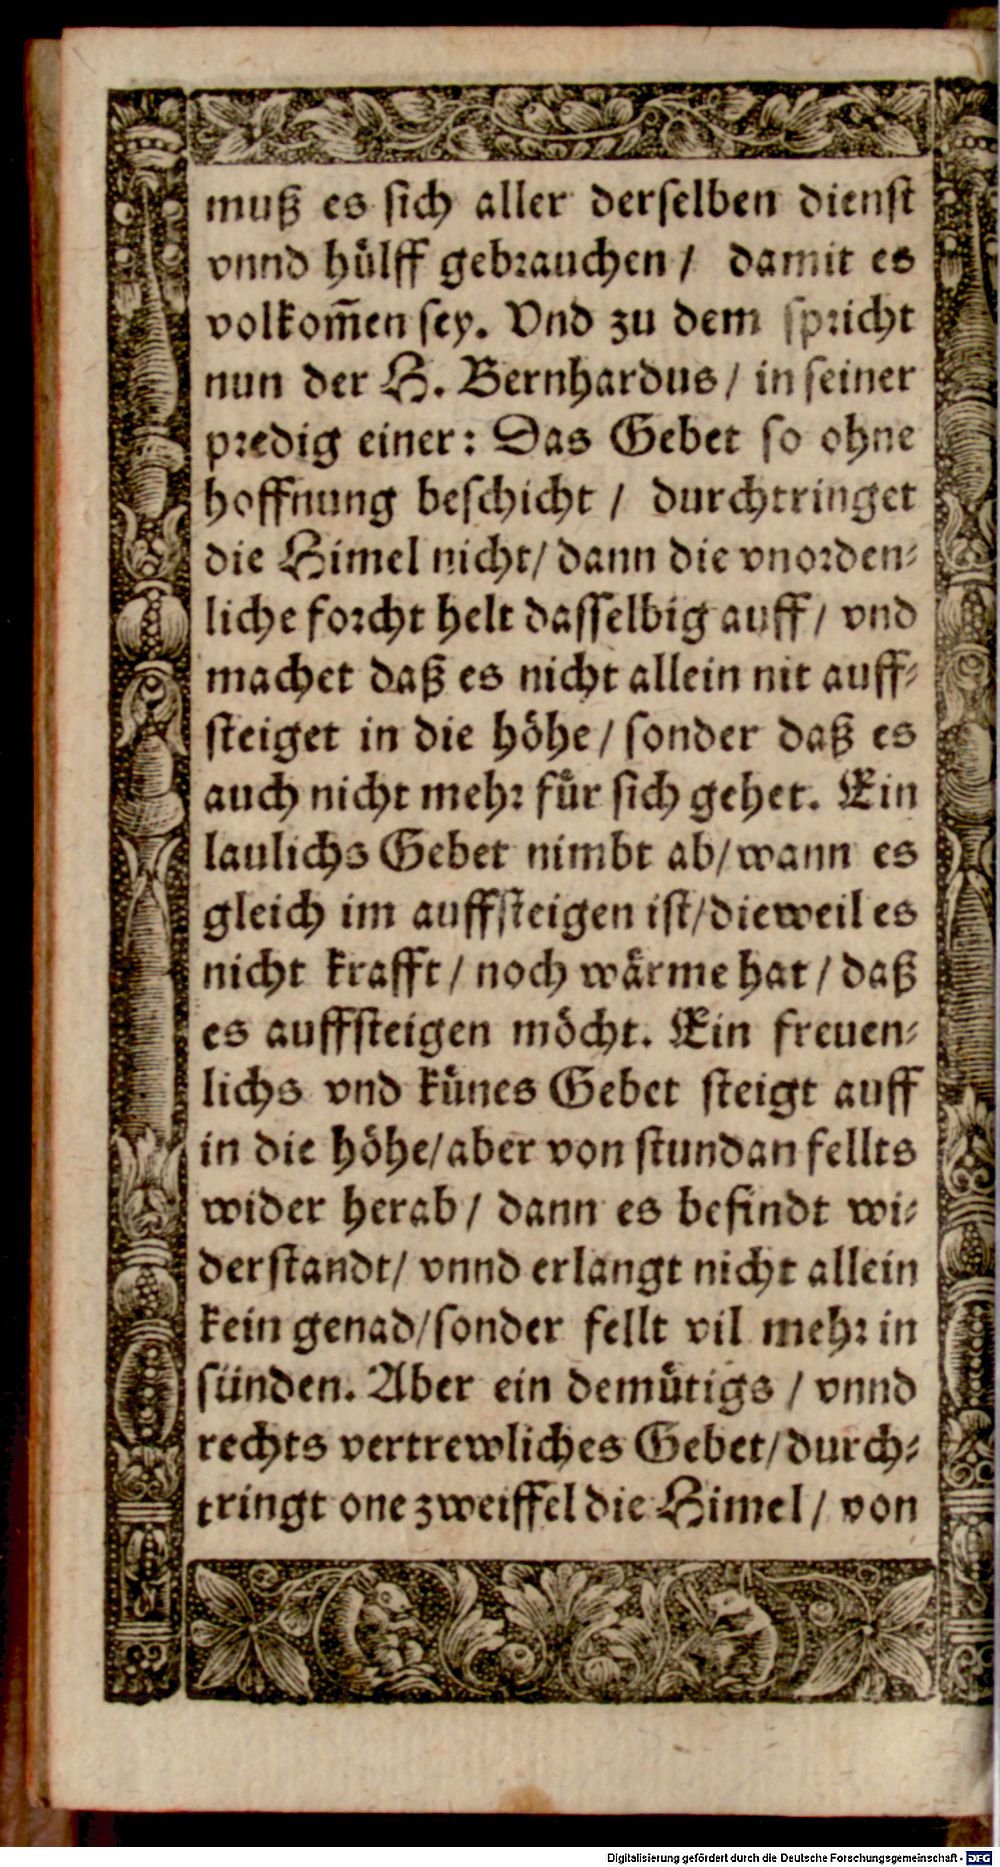 muß es sich aller derselben dienst
vnnd hülff gebrauchen / damit es
volkom̃en sey. Vnd zu dem spricht
nun der H. Bernhardus / in seiner
predig einer: Das Gebet so ohne
hoffnung beschicht / durchtringet
die Himel nicht / dann die vnorden-
liche forcht helt dasselbig auff / vnd
machet daß es nicht allein nit auff-
steiget in die höhe / sonder daß es
auch nicht mehr für sich gehet. Ein
laulichs Gebet nimbt ab / wann es
gleich im auffsteigen ist / dieweil es
nicht krafft / noch wärme hat / daß
es auffsteigen möcht. Ein freuen-
lichs vnd künes Gebet steigt auff
in die höhe / aber von stundan fellts
wider herab / dann es befindt wi-
derstandt / vnnd erlangt nicht allein
kein genad / sonder fellt vil mehr in
sünden. Aber ein demütigs / vnnd
rechts vertrewliches Gebet / durch-
tringt one zweiffel die Himel / von
Digitalisierung gefördert durch die Deutsche Forschungsgemeinschaft - DFG